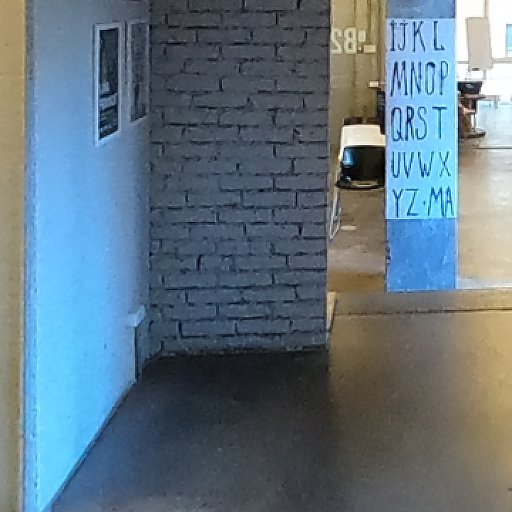 IJKL
MNOP
QRST
UVWX
YZ·MA